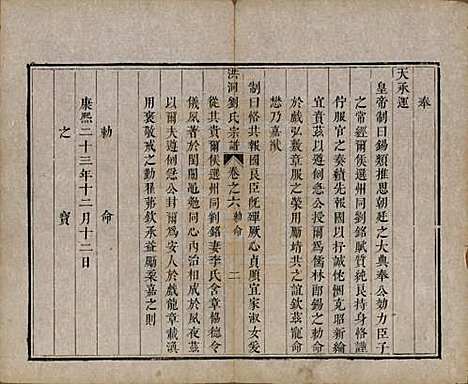 奉
天承運
皇帝制曰錫類推恩朝廷之大典奉公効力臣子
之常經爾候選州同劉銘賦質純良持身恪謹
佇服官之奏績先報國以抒誠俗惘克昭新綸
宜賁茲以遇何急公授爾為儒林郎錫之勅命
於戲弘敷章服之榮用勵靖共之誼欽茲寵命
懋乃嘉猷
制曰恪共報國良臣旣殫厥心貞順宜家淑女爰
從其貴爾候選州同劉銘妻李氏含章協德令
儀夙著於閨闈黽勉同心內治相成於夙夜茲
以爾夫遇何急公封爾為安人於戲龍章載渙
用褒敬戒之勤翟茀欽承益勵柔嘉之則
勅命
康熙二十三年十二月十二日
之寶
洪洞劉氏宗譜
卷之六 勅命
二